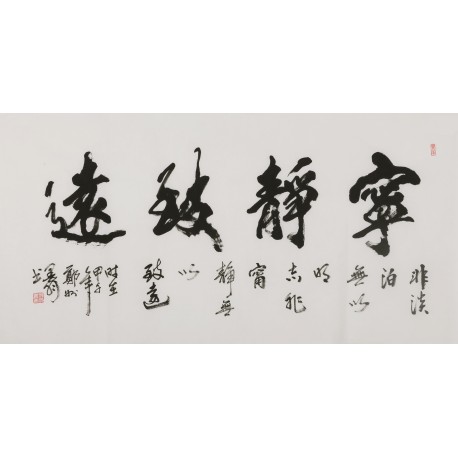 寧靜致遠
非淡
泊
無以
明
志非
甯
靜無
以
致遠
時在
甲子年
鄭州